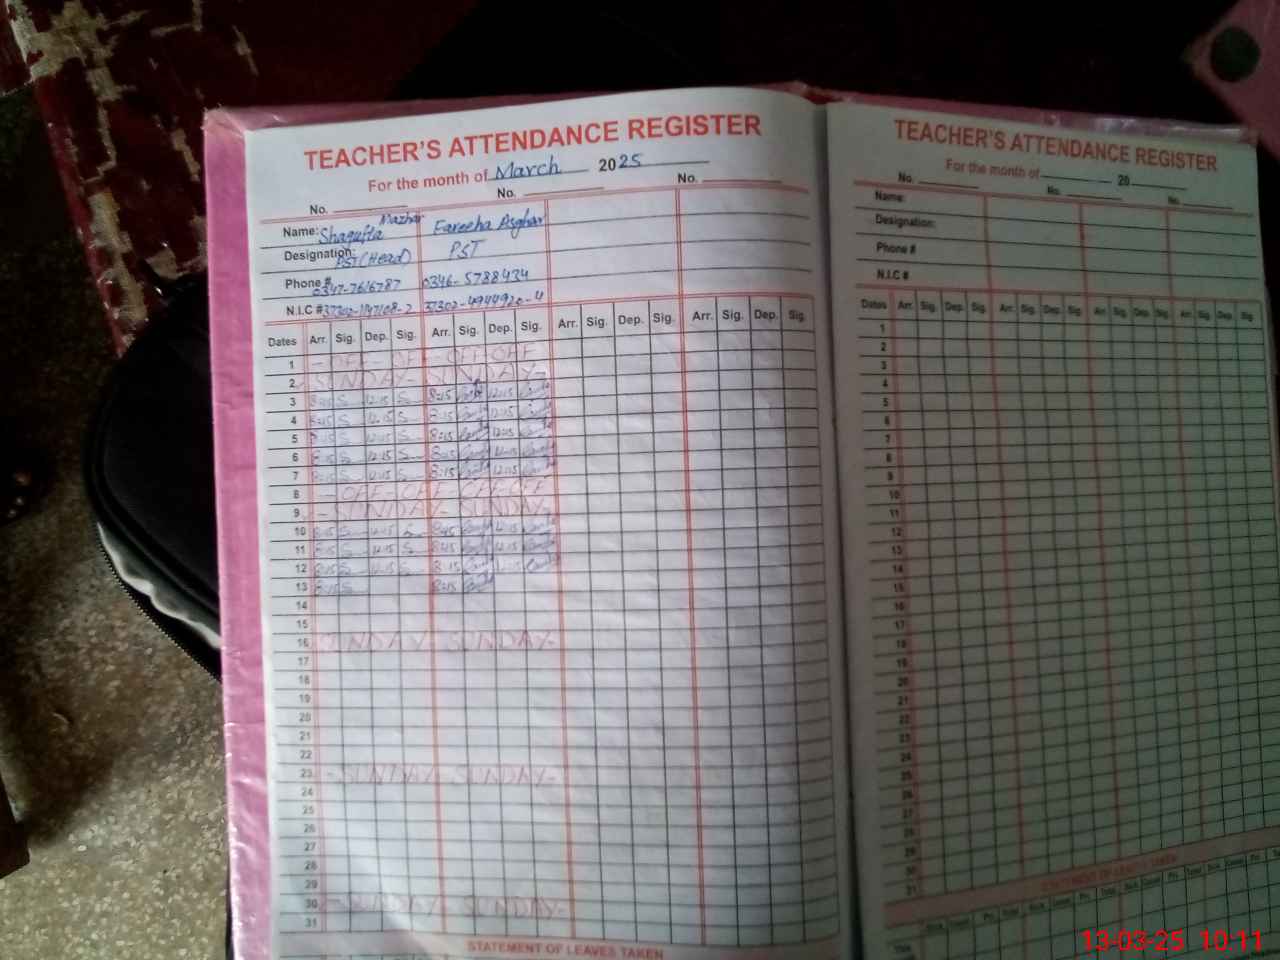 TEACHER'S ATTENDANCE REGISTER
For the month of March 2025
No. No. No.
Name: Shagufta Mazhar Fareeha Asghar
Designation: PST (Head) PST
Phone # 0347-7616787 0346-5788434
N.I.C # 37302-4944920-4
Dates Arr. Sig. Dep. Sig. Arr. Sig. Dep. Sig. Arr. Sig. Dep. Sig. Arr. Sig. Dep. Sig.
1 - OFF - OFF - OFF - OFF
2 SUNDAY - SUNDAY -
3 8:15 12:15 8:15 12:15
4 8:15 12:15 8:15 12:15
5 8:15 12:15 8:15 12:15
6 8:15 12:15 8:15 12:15
7 8:15 12:15 8:15 12:15
8 - OFF - OFF OFF - OFF
9 - SUNDAY - SUNDAY -
10 8:15 12:15 8:15 12:15
11 8:15 12:15 8:15 12:15
12 8:15 12:15 8:15 12:15
13 8:15 8:15
14
15
16 SUNDAY - SUNDAY -
17
18
19
20
21
22
23 - SUNDAY - SUNDAY -
24
25
26
27
28
29
30 - SUNDAY - SUNDAY -
31
STATEMENT OF LEAVES TAKEN
TEACHER'S ATTENDANCE REGISTER
For the month of 20
No. No. No.
Name:
Designation:
Phone #
N.I.C #
Dates Arr. Sig. Dep. Sig. Arr. Sig. Dep. Sig. Arr. Sig. Dep. Sig.
1
2
3
4
5
6
7
8
9
10
11
12
13
14
15
16
17
18
19
20
21
22
23
24
25
26
27
28
29
30
31
STATEMENT OF LEAVES TAKEN
13-03-25 10:11